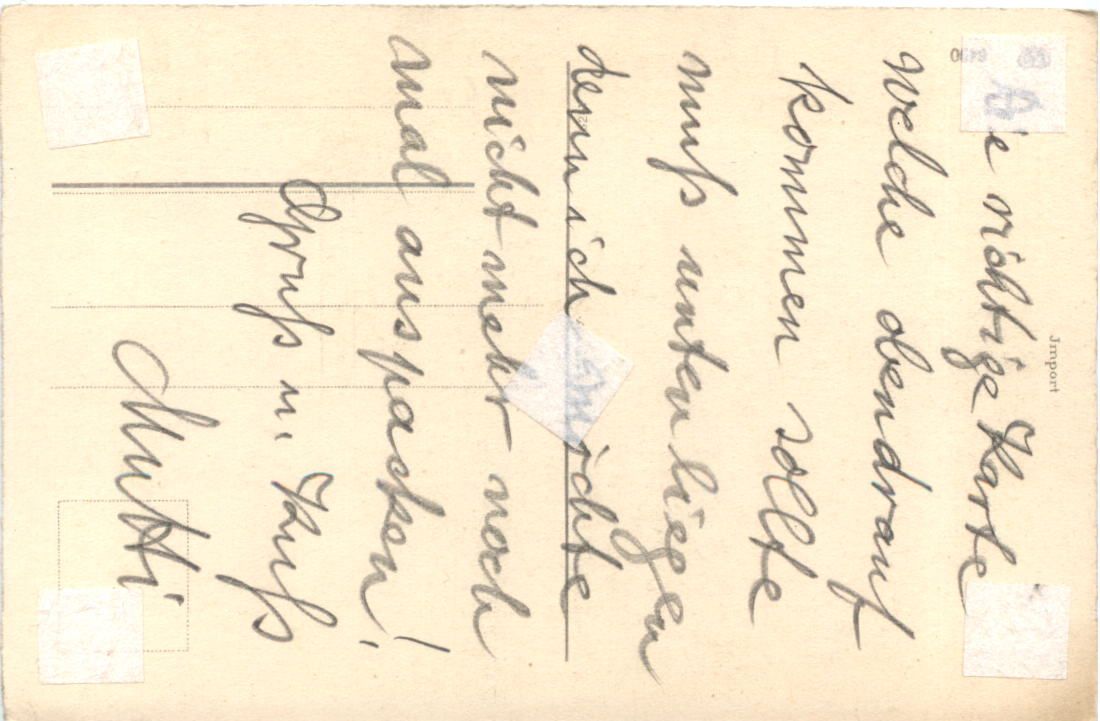 Die richtige Karte
welche obendrauf
kommen sollte
muß unten liegen
denn ich möchte
nicht mehr noch
mal auspacken!
Gruß u. Kuß
Mutti
Jmport
6490